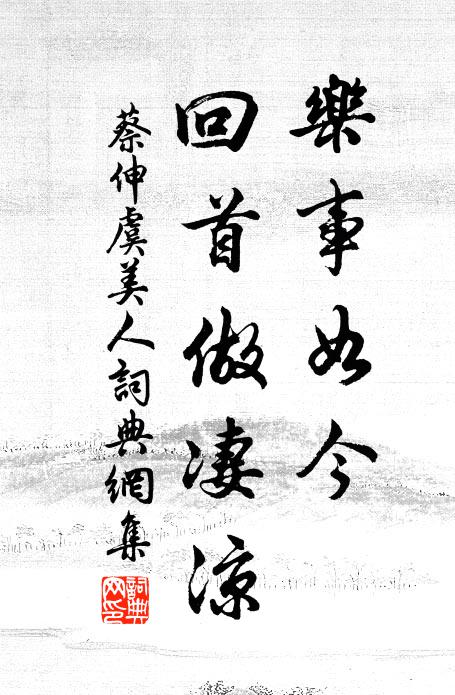 樂事如今
回首做凄涼
蔡伸虞美人詞典網集
詞典网印